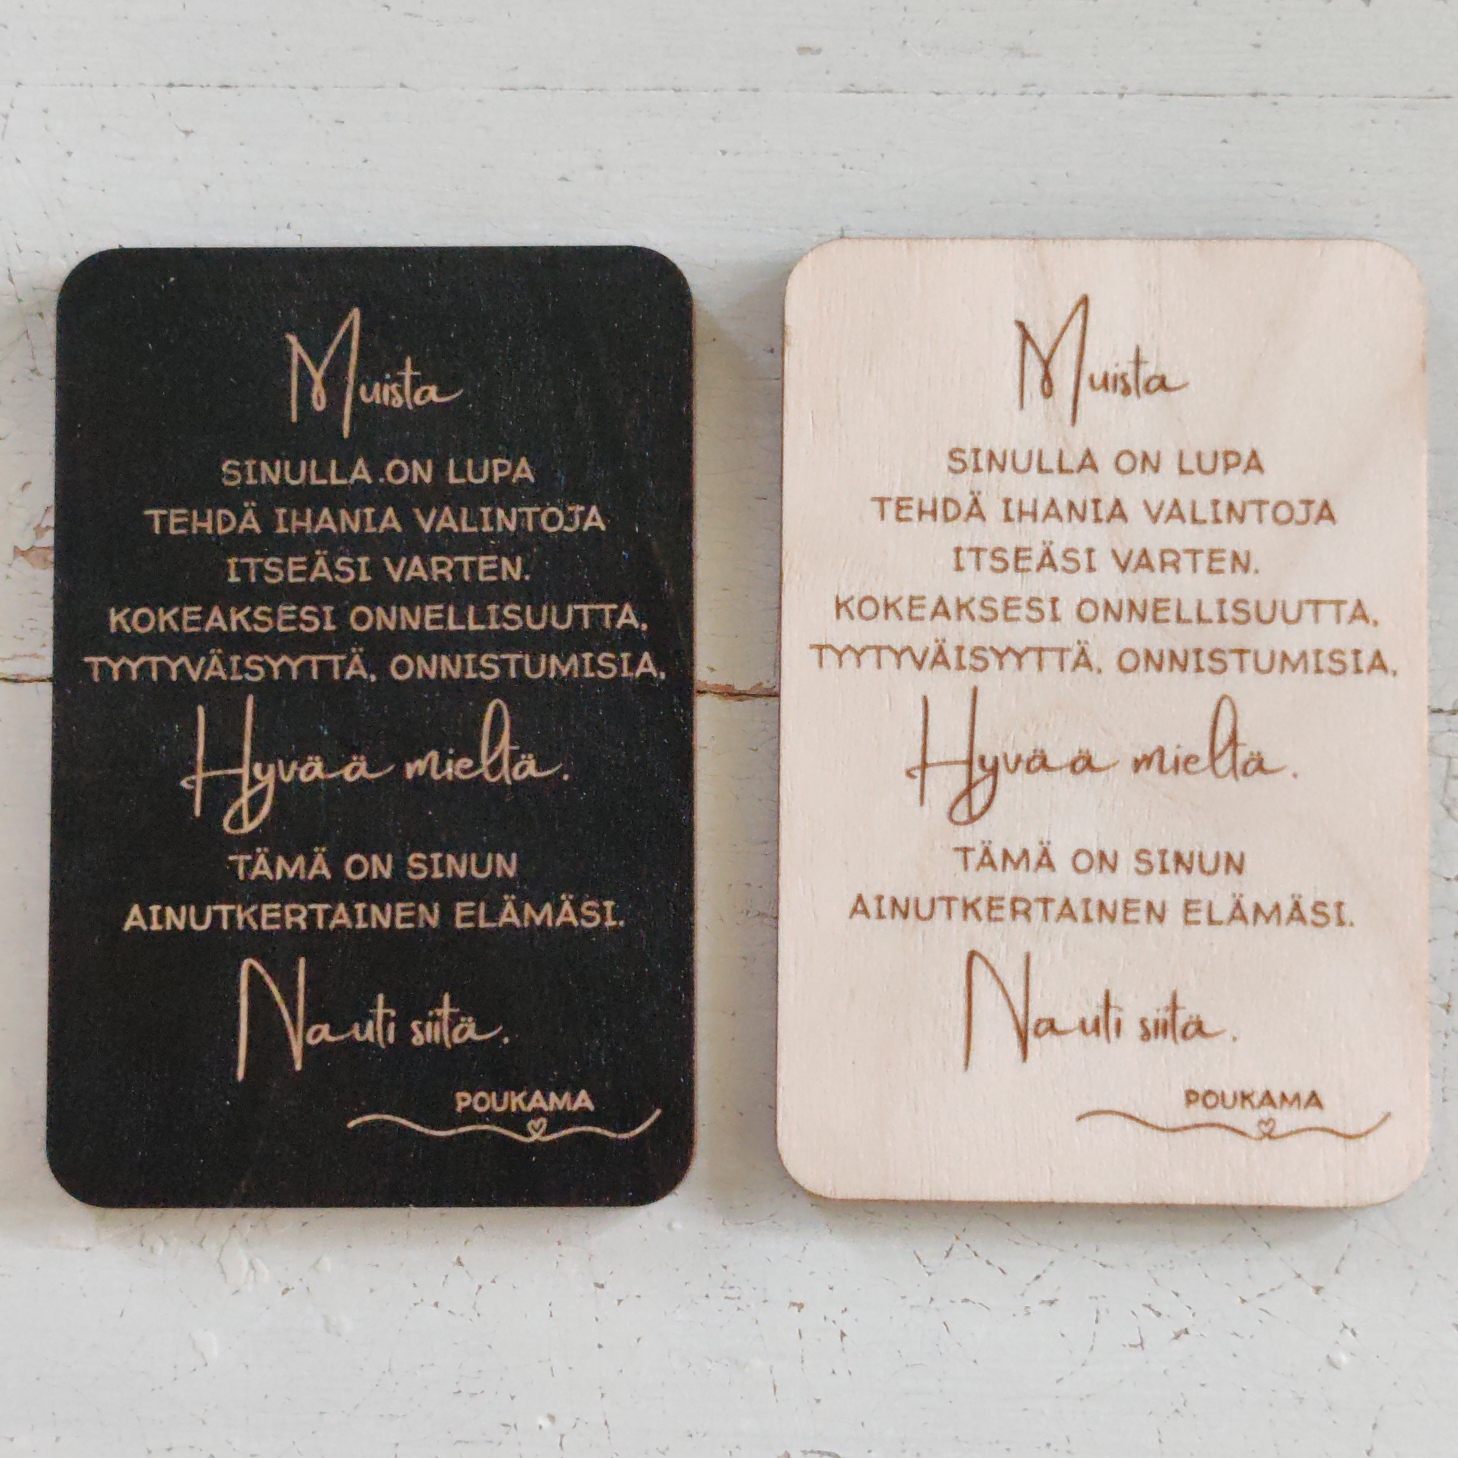 Muista
SINULLA ON LUPA
TEHDÄ IHANIA VALINTOJA
ITSEÄSI VARTEN.
KOKEAKSESI ONNELLISUUTTA,
TYYTYVÄISYYTTÄ, ONNISTUMISIA,
Hyvää mieltä.
TÄMÄ ON SINUN
AINUTKERTAINEN ELÄMÄSI.
Nauti siitä.
POUKAMA
Muista
SINULLA ON LUPA
TEHDÄ IHANIA VALINTOJA
ITSEÄSI VARTEN.
KOKEAKSESI ONNELLISUUTTA,
TYYTYVÄISYYTTÄ, ONNISTUMISIA,
Hyvää mieltä.
TÄMÄ ON SINUN
AINUTKERTAINEN ELÄMÄSI.
Nauti siitä.
POUKAMA